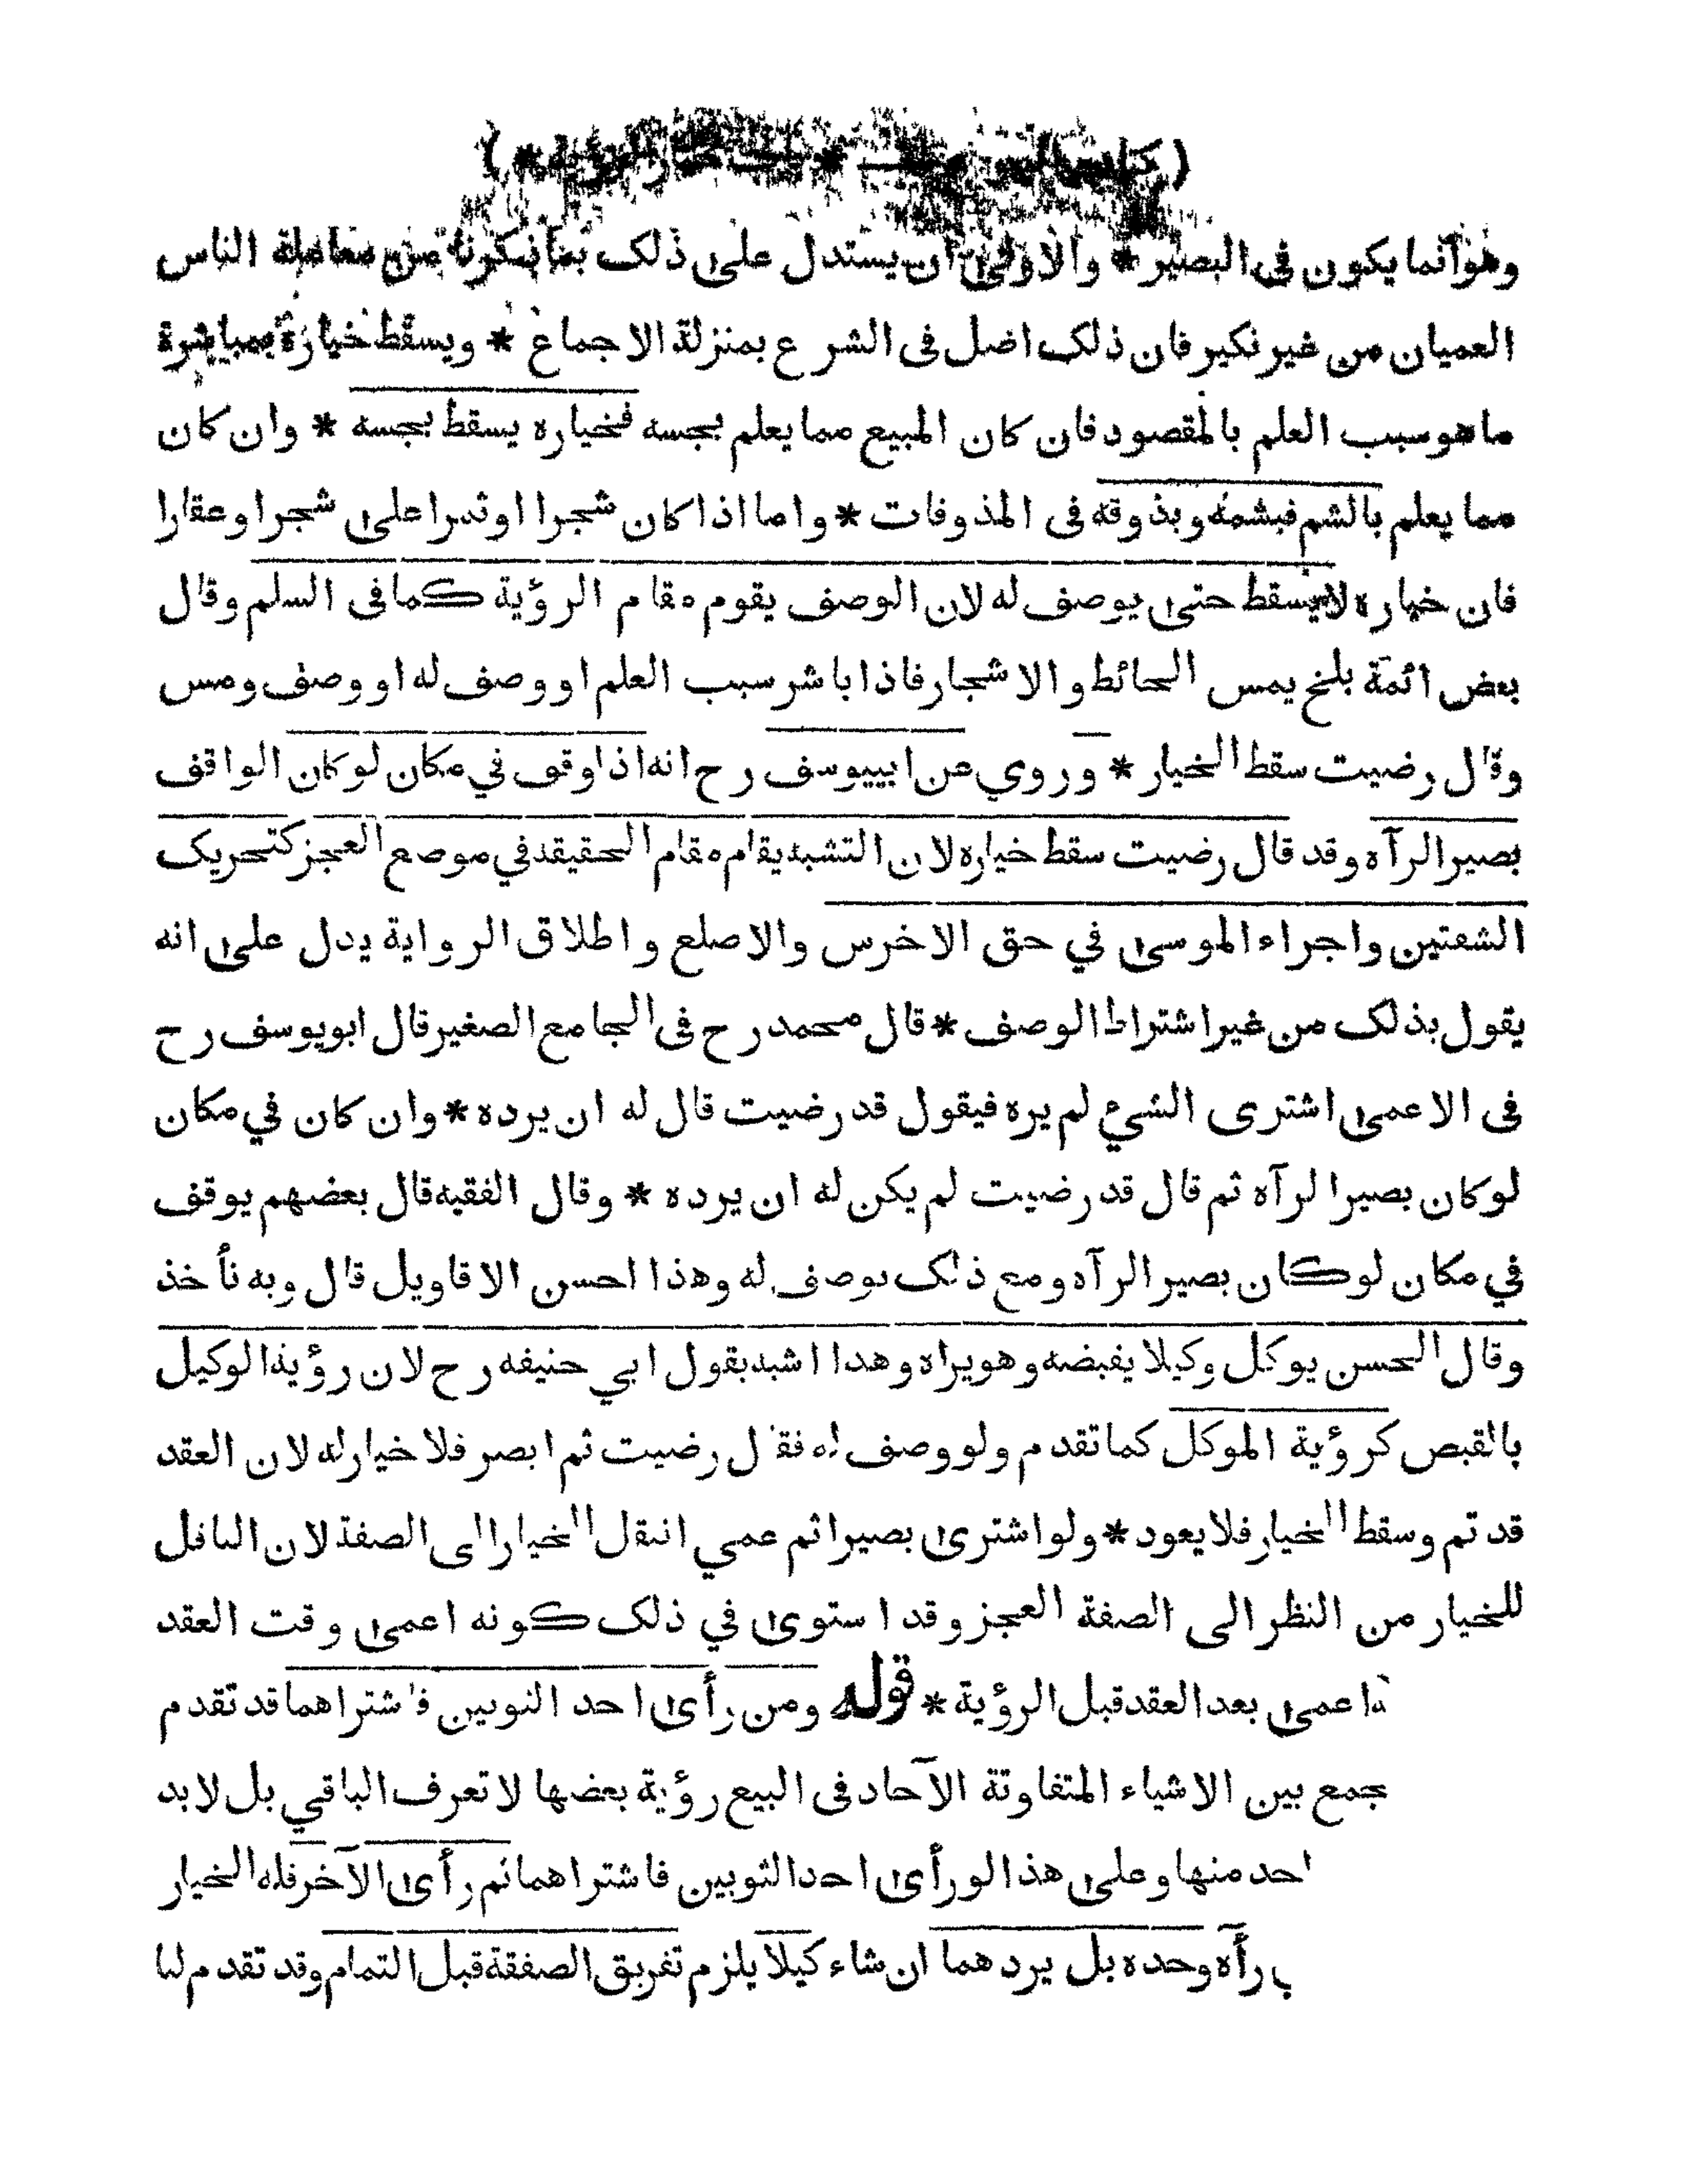 ( كتاب البيوع * باب خيار الرؤية * )
وهو انما يكون في البصير * والاولى ان يستدل على ذلك بما ذكرنا من معاملة الناس
العميان من غير نكير فان ذلك اصل فى الشرع بمنزلة الاجماع * ويسقط خياره بمباشرة
ما هو سبب العلم بالمقصود فان كان المبيع مما يعلم بجسه فخياره يسقط بجسه * وان كان
مما يعلم بالشم فبشمه وبذوقه فى المذوقات * واما اذا كان شجرا او ثمرا على شجر او عقارا
فان خياره لا يسقط حتى يوصف له لان الوصف يقوم مقام الرؤية كما فى السلم وقال
بعض ائمة بلخ يمس الحائط والاشجار فاذا باشر سبب العلم او وصف له او وصف ومس
وقال رضيت سقط الخيار * وروي عن ابييوسف رح انه اذا وقف في مكان لو كان الواقف
بصيرا لرآه وقد قال رضيت سقط خياره لان التشبه يقام مقام الحقيقة في موضع العجز كتحريك
الشفتين واجراء الموسى في حق الاخرس والاصلع واطلاق الرواية يدل على انه
يقول بذلك من غير اشتراط الوصف * قال محمد رح فى الجامع الصغير قال ابو يوسف رح
فى الاعمى اشترى الشيء لم يره فيقول قد رضيت قال له ان يرده * وان كان في مكان
لو كان بصيرا لرآه ثم قال قد رضيت لم يكن له ان يرده * وقال الفقيه قال بعضهم يوقف
في مكان لو كان بصيرا لرآه ومع ذلك يوصف له وهذا احسن الاقاويل قال وبه نأخذ
وقال الحسن يوكل وكيلا يقبضه وهو يراه وهذا اشبه بقول ابي حنيفه رح لان رؤية الوكيل
بالقبض كرؤية الموكل كما تقدم ولو وصف له فقال رضيت ثم ابصر فلا خيار له لان العقد
قد تم وسقط الخيار فلا يعود * ولو اشترى بصيرا ثم عمي انتقل الخيار الى الصفة لان الناقل
للخيار من النظر الى الصفة العجز وقد استوى في ذلك كونه اعمى وقت العقد
اعمى بعد العقد قبل الرؤية * قوله ومن رأى احد الثوبين فاشتراهما قد تقدم
جمع بين الاشياء المتفاوتة الآحاد فى البيع رؤية بعضها لا تعرف الباقي بل لا بد
احد منها وعلى هذا لو رأى احد الثوبين فاشتراهما ثم رأى الآخر فله الخيار
رأه وحده بل يردهما ان شاء كيلا يلزم تفريق الصفقة قبل التمام وقد تقدم لنا